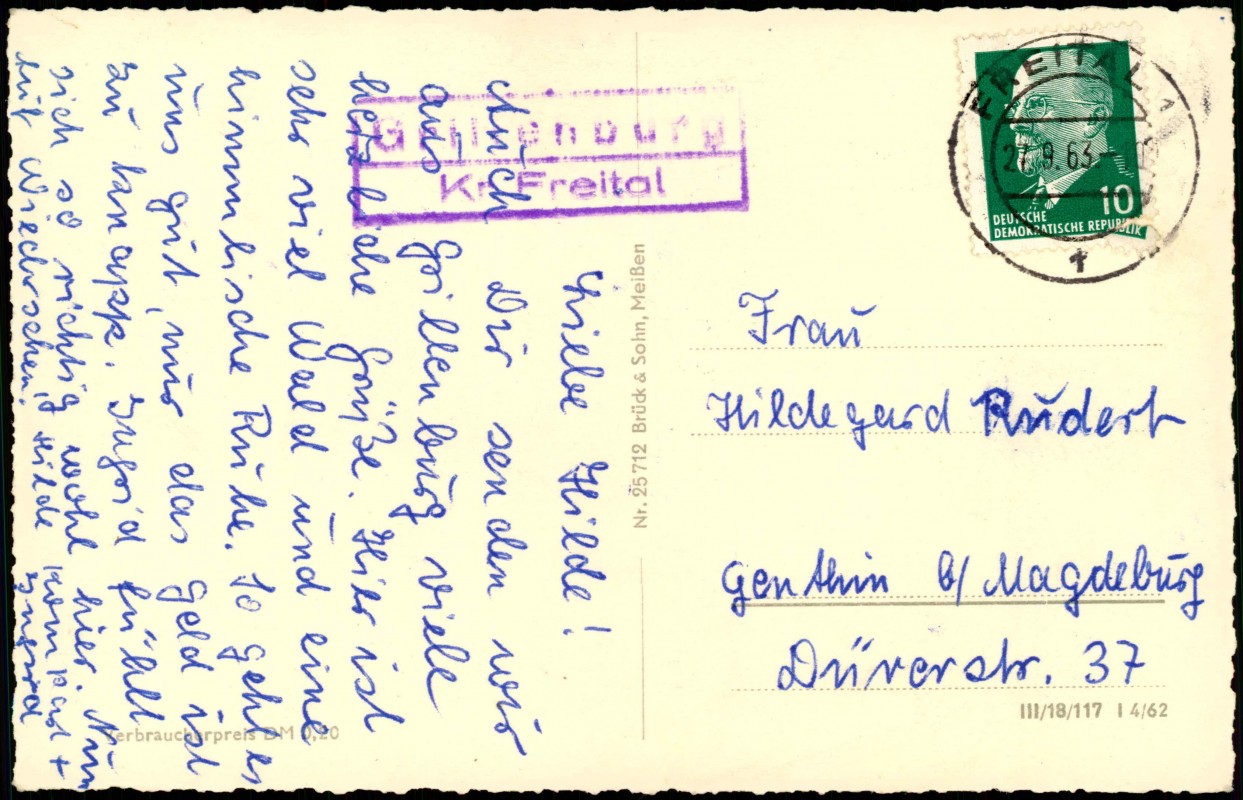 Liebe Hilde!
Auch Dir senden wir
aus Grillenburg viele
herzliche Grüße. Hier ist
sehr viel Wald und eine
himmlische Ruhe. So geht es
uns gut, nur das Geld ist
zu knapp. Ingrid fühlt
sich so richtig wohl hier. Nun
auf Wiedersehen, Hilde
Ingrid
Grillenburg
Kr. Freital
FREITAL 1
27.9.63
1
10
DEUTSCHE
DEMOKRATISCHE REPUBLIK
Nr. 25 712 Brück & Sohn, Meißen
Frau
Hildegard Rudert
Genthin b/ Magdeburg
Dürerstr. 37
III/18/117 I 4/62
Verbraucherpreis DM 0,20